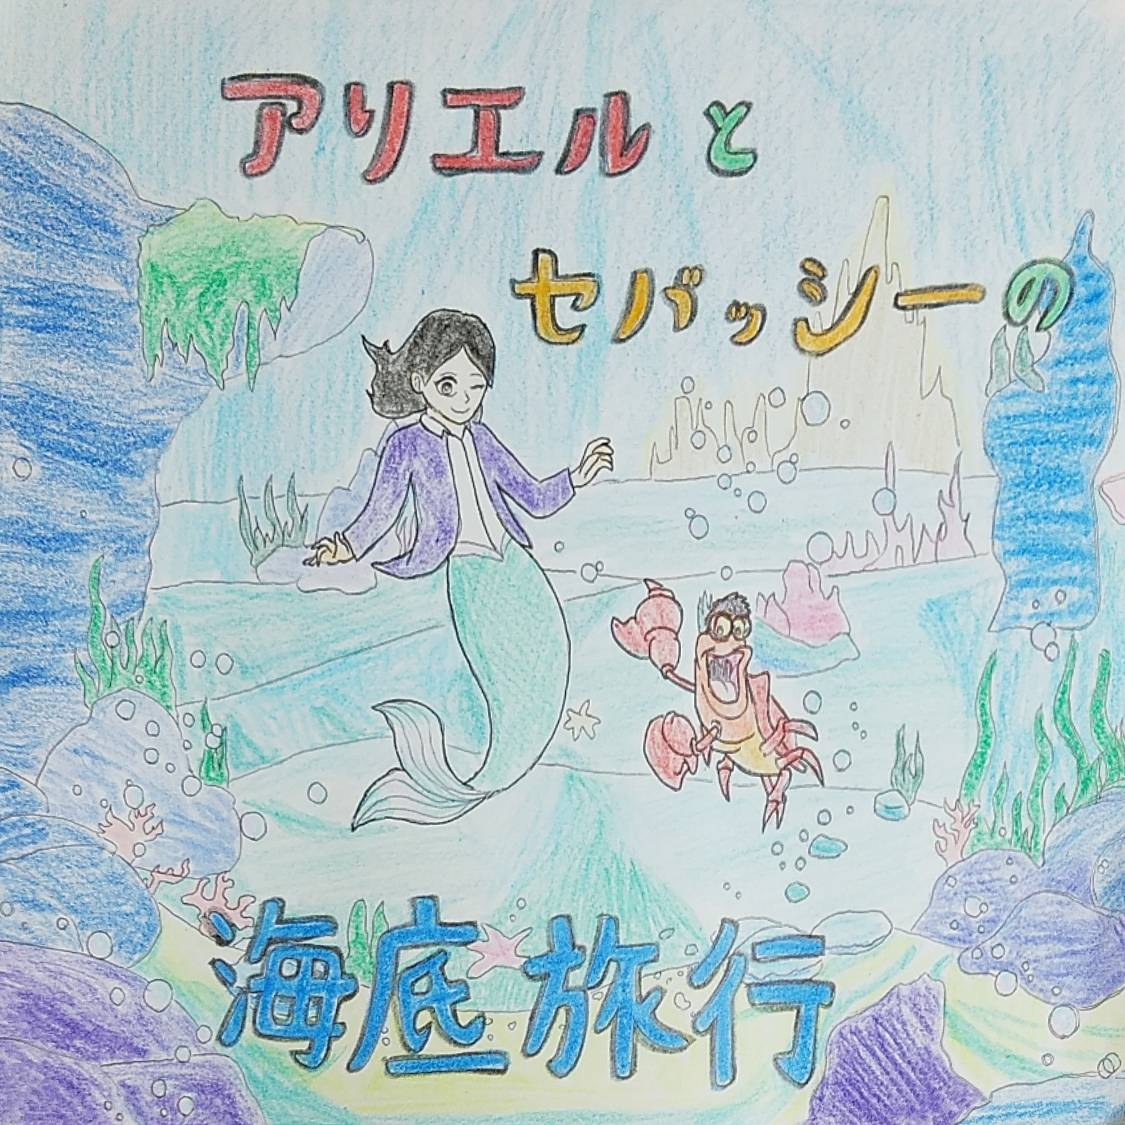 アリエルと
セバッシーの
海底旅行